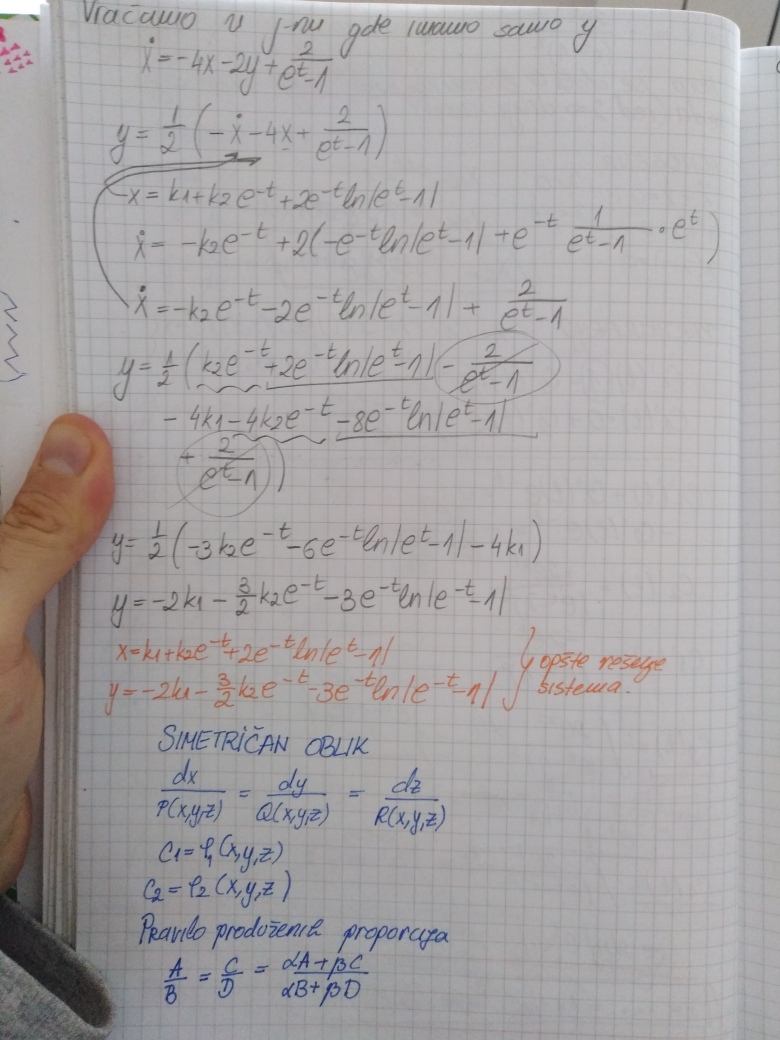 Vraćamo u j-nu gde imamo samo y
ẋ = -4x - 2y + 2/(e^t - 1)
y = 1/2 (-ẋ - 4x + 2/(e^t - 1))
x = k1 + k2e^-t + 2e^-t ln|e^t - 1|
ẋ = -k2e^-t + 2(-e^-t ln|e^t - 1| + e^-t 1/(e^t - 1) · e^t)
ẋ = -k2e^-t - 2e^-t ln|e^t - 1| + 2/(e^t - 1)
y = 1/2 (k2e^-t + 2e^-t ln|e^t - 1| - 2/(e^t - 1)
- 4k1 - 4k2e^-t - 8e^-t ln|e^t - 1|
+ 2/(e^t - 1))
y = 1/2 (-3k2e^-t - 6e^-t ln|e^t - 1| - 4k1)
y = -2k1 - 3/2 k2e^-t - 3e^-t ln|e^-t - 1|
x = k1 + k2e^-t + 2e^-t ln|e^t - 1|
y = -2k1 - 3/2 k2e^-t - 3e^-t ln|e^-t - 1|
} opšte rešenje
sistema.
SIMETRIČAN OBLIK
dx/P(x,y,z) = dy/Q(x,y,z) = dz/R(x,y,z)
C1 = φ1(x,y,z)
C2 = φ2(x,y,z)
Pravilo produženih proporcija
A/B = C/D = (αA + βC)/(αB + βD)